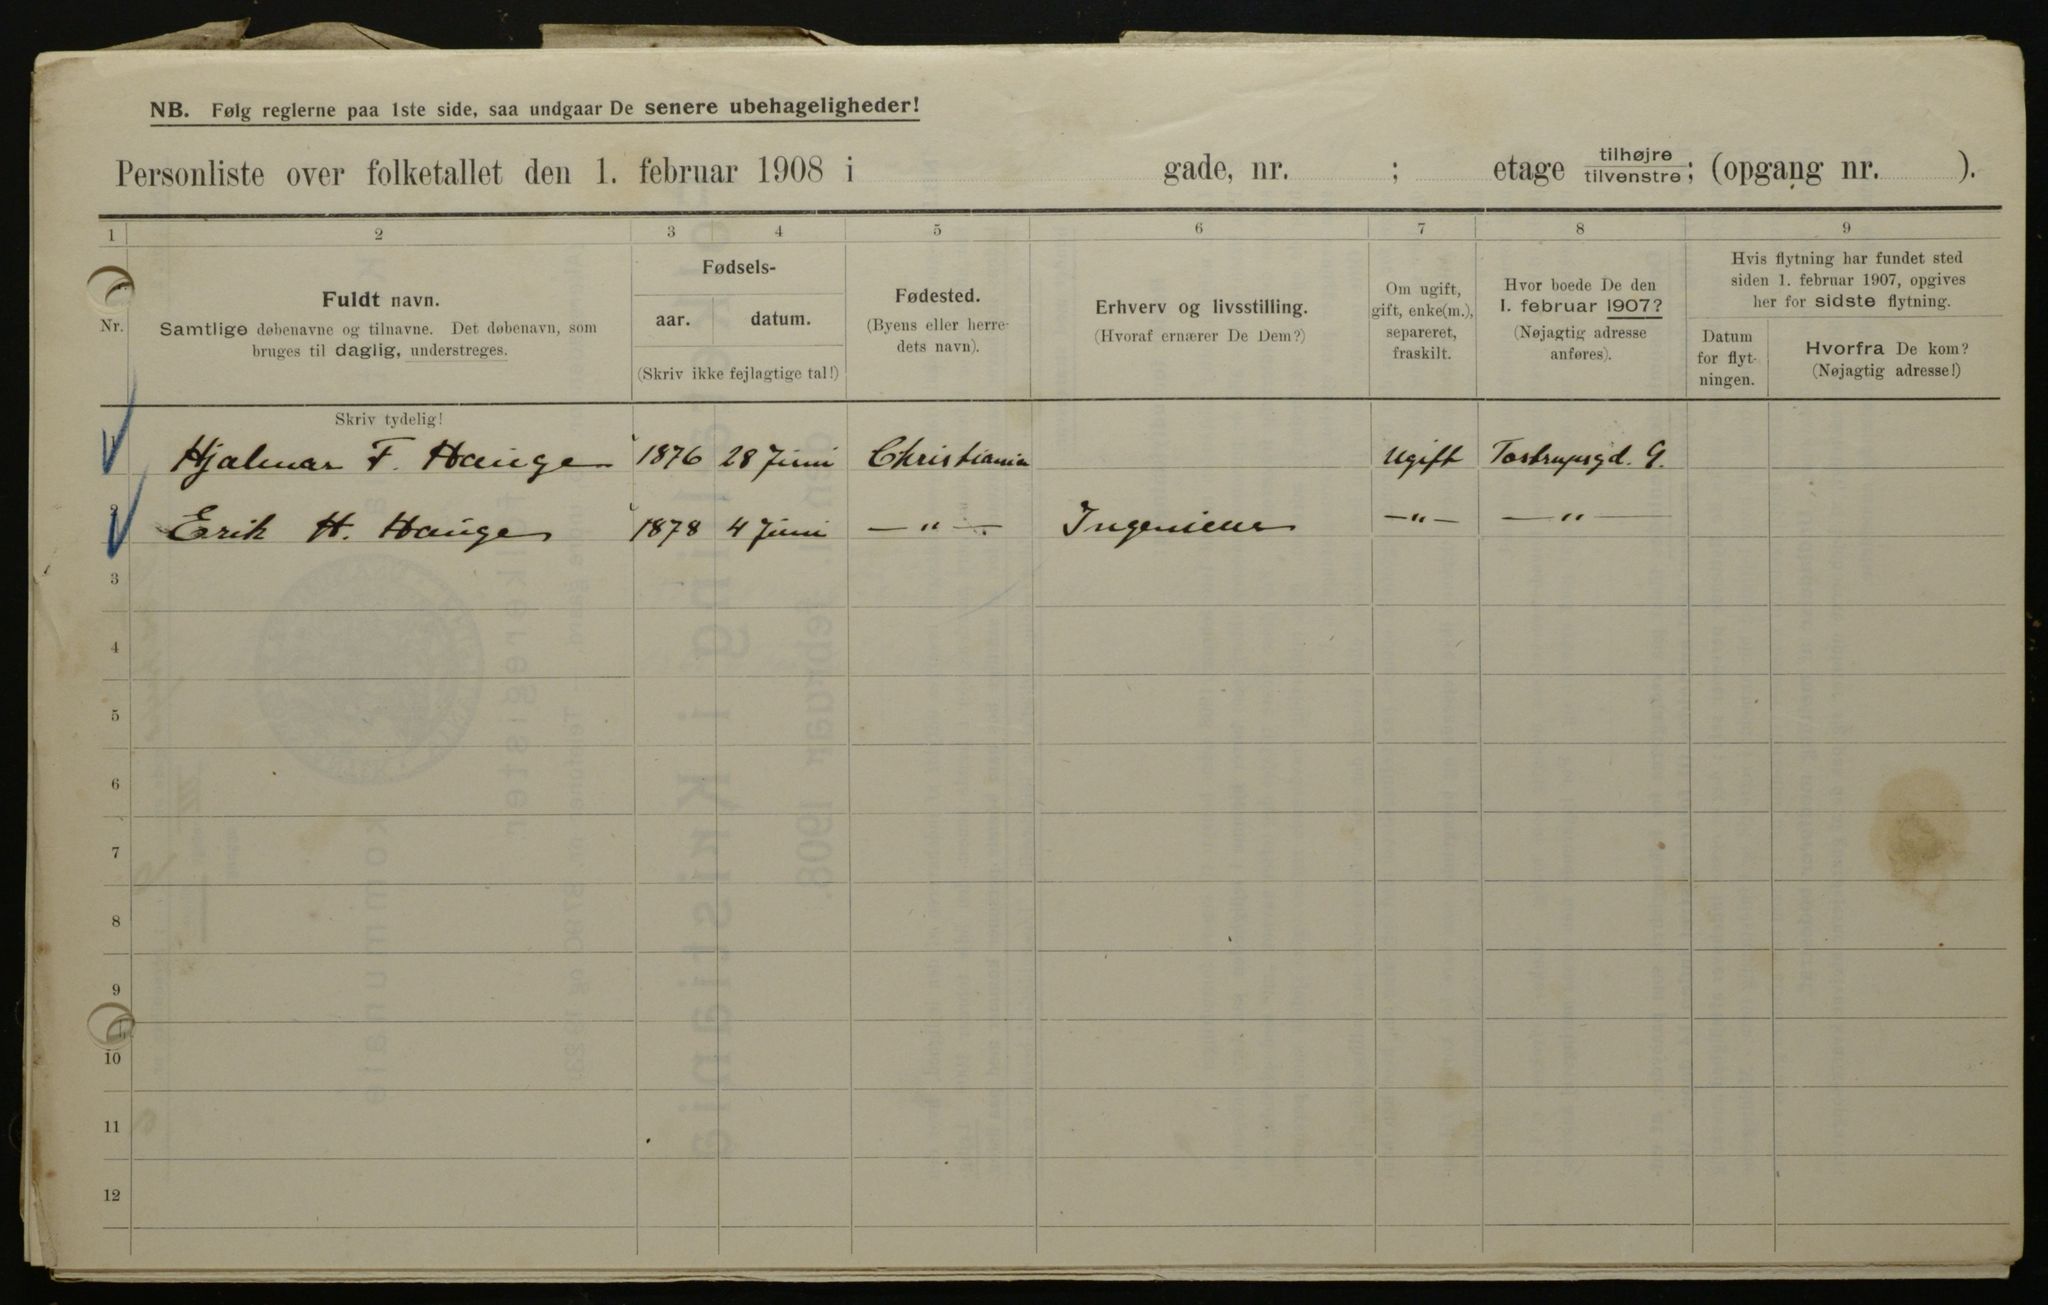 NB. Følg reglerne paa 1ste side, saa undgaar De senere ubehageligheder!
Personliste over folketallet den 1. februar 1908 i gade, nr. ; etage tilhøjre tilvenstre; (opgang nr. ).
1 2 3 4 5 6 7 8 9
Nr.
Fuldt navn.
Samtlige døbenavne og tilnavne. Det døbenavn, som
bruges til daglig, understreges.
Fødsels-
aar. datum.
(Skriv ikke fejlagtige tal!)
Fødested.
(Byens eller herre-
dets navn).
Erhverv og livsstilling.
(Hvoraf ernærer De Dem?)
Om ugift,
gift, enke(m.),
separeret,
fraskilt.
Hvor boede De den
1. februar 1907?
(Nøjagtig adresse
anføres).
Hvis flytning har fundet sted
siden 1. februar 1907, opgives
her for sidste flytning.
Datum
for flyt-
ningen.
Hvorfra De kom?
(Nøjagtig adresse!)
Skriv tydelig!
1 Hjalmar F. Hauge 1876 28 Juni Christiania Ugift Tostrupsgd. G.
2 Erik H. Hauge 1878 4 Juni —"— Ingeniør —"— —"—
3
4
5
6
7
8
9
10
11
12